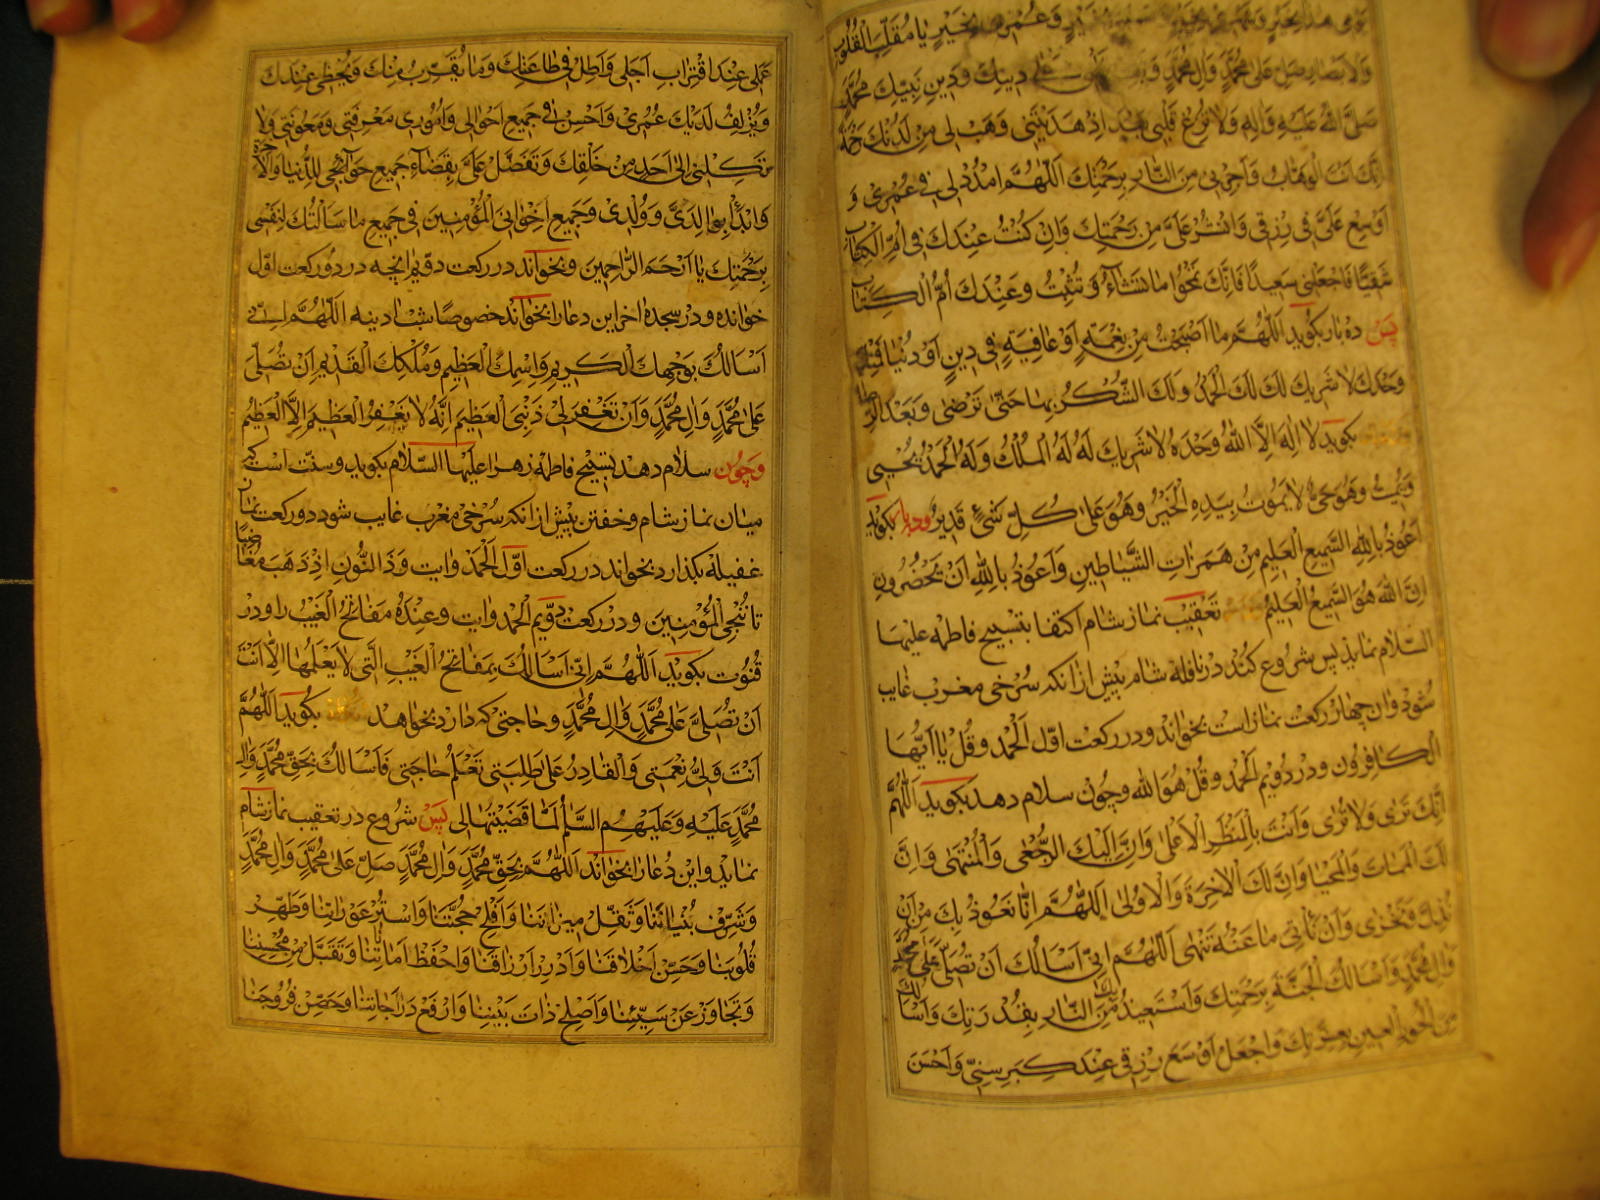 وَلاَبْصَارِ صَلِّ عَلىٰ مُحَمَّدٍ وَاٰلِ مُحَمَّدٍ دينِكَ وَدينِ نَبِيِّكَ مُحَمَّدٍ
صَلَّى اللهُ عَلَيْهِ وَاٰلِهِ وَلاٰ تُزِغْ قَلْبى بَعْدَ اِذْ هَدَيْتَنى وَهَبْ لى مِنْ لَدُنْكَ رَحْمَةً
اِنَّكَ اَنْتَ الْوَهّٰابُ وَاَجِرْنى مِنَ النّٰارِ بِرَحْمَتِكَ اَللّٰهُمَّ امْدُدْ لى فى عُمْرى وَ
اَوْسِعْ عَلَىَّ فى رِزْقى وَانْشُرْ عَلَىَّ مِنْ رَحْمَتِكَ وَاِنْ كُنْتُ عِنْدَكَ فى اُمِّ الْكِتٰابِ
شَقِيًّا فَاجْعَلْنى سَعيدًا فَاِنَّكَ تَمْحُوا مٰا تَشٰاءُ وَتُثْبِتُ وَعِنْدَكَ اُمُّ الْكِتٰابِ
پس ده بار بكويد اَللّٰهُمَّ مٰا اَصْبَحَتْ مِنْ نِعْمَةٍ اَوْ عٰافِيَةٍ فى دينٍ اَوْ دُنْيٰا فَمِنْكَ
وَحْدَكَ لاٰ شَريكَ لَكَ لَكَ الْحَمْدُ وَلَكَ الشُّكْرُ بِهٰا حَتّٰى تَرْضٰى وَبَعْدَ الرِّضٰا
بكويد لاٰ اِلٰهَ اِلاَّ اللهُ وَحْدَهُ لاٰ شَريكَ لَهُ لَهُ الْمُلْكُ وَلَهُ الْحَمْدُ يُحْيى
وَيُميتُ وَهُوَ حَىٌّ لاٰ يَمُوتُ بِيَدِهِ الْخَيْرُ وَهُوَ عَلىٰ كُلِّ شَىْءٍ قَديرٌ وده بار بكويد
اَعُوذُ بِاللهِ السَّميعِ الْعَليمِ مِنْ هَمَزٰاتِ الشَّيٰاطينِ وَاَعُوذُ بِاللهِ اَنْ يَحْضُرُونِ
اِنَّ اللهَ هُوَ السَّميعُ الْعَليمُ تعقيب نماز شام اكتفا بتسبيح فاطمه عليها
السّلام نمايد پس شروع كند در نافلهٔ شام پيش ازانكه سرخى مغرب غايب
شود وان چهار ركعت نماز است بخواند ودر ركعت اوّل اَلْحَمْد وَقُلْ يٰا اَيُّهَا
الْكٰافِرُون ودر دويم اَلْحَمْد وَقُلْ هُوَ الله وچون سلام دهد بكويد اَللّٰهُمَّ
اِنَّكَ تَرٰى وَلاٰ تُرٰى وَاَنْتَ بِالْمَنْظَرِ الْاَعْلىٰ وَاِنَّ اِلَيْكَ الرُّجْعىٰ وَالْمُنْتَهىٰ وَاِنَّ
لَكَ الْمَمٰاتَ وَالْمَحْيٰا وَاِنَّ لَكَ الْاٰخِرَةَ وَالْاُولىٰ اَللّٰهُمَّ اِنّٰا نَعُوذُ بِكَ مِنْ اَنْ
نَذِلَّ وَنَخْزٰى وَاَنْ نَأْتِىَ مٰا عَنْهُ تَنْهىٰ اَللّٰهُمَّ اِنّى اَسْاَلُكَ اَنْ تُصَلِّىَ عَلىٰ مُحَمَّدٍ
وَاٰلِ مُحَمَّدٍ وَاَسْاَلُكَ الْجَنَّةَ بِرَحْمَتِكَ وَاَسْتَعيذُ بِكَ مِنَ النّٰارِ بِقُدْرَتِكَ وَاَسْاَلُكَ
مِنَ الْحُورِ الْعينِ بِعِزَّتِكَ وَاجْعَلْ اَوْسَعَ رِزْقى عِنْدَ كِبَرِ سِنّى وَاَحْسَنَ
عَمَلى عِنْدَ اقْتِرٰابِ اَجَلى وَاَطِلْ فى طٰاعَتِكَ وَمٰا يُقَرِّبُ مِنْكَ وَيُحْظى عِنْدَكَ
وَيُزْلِفُ لَدَيْكَ عُمْرى وَاَحْسِنْ فى جَميعِ اَحْوٰالى وَاُمُورى مَعْرِفَتى وَمَعُونَتى وَلاٰ
تَكِلْنى اِلىٰ اَحَدٍ مِنْ خَلْقِكَ وَتَفَضَّلْ عَلَىَّ بِقَضٰاءِ جَميعِ حَوٰائِجى لِلدُّنْيٰا وَالْاٰخِرَةِ
وَابْدَأْ بِوٰالِدَىَّ وَوُلْدى وَجَميعِ اِخْوٰانِىَ الْمُؤْمِنينَ فى جَميعِ مٰا سَاَلْتُكَ لِنَفْسى
بِرَحْمَتِكَ يٰا اَرْحَمَ الرّٰاحِمينَ وبخواند در ركعت دوّيم انچه در دو ركعت اوّل
خوانده ودر سجدهٔ اخر اين دعا را بخواند خصوصًا شب ادينه اَللّٰهُمَّ اِنّى
اَسْاَلُكَ بِوَجْهِكَ الْكَريمِ وَاسْمِكَ الْعَظيمِ وَمُلْكِكَ الْقَديمِ اَنْ تُصَلِّىَ
عَلىٰ مُحَمَّدٍ وَاٰلِ مُحَمَّدٍ وَاَنْ تَغْفِرَ لى ذَنْبِىَ الْعَظيمَ اِنَّهُ لاٰ يَغْفِرُ الْعَظيمَ اِلاَّ الْعَظيمُ
وچون سلام دهد بتسبيح فاطمه زهرا عليها السّلام بكويد وسنّت است كه
ميان نماز شام وخفتن پيش ازانكه سرخى مغرب غايب شود دو ركعت نماز
غفيله بكذارد بخواند در ركعت اوّل اَلْحَمْد وايت وَذَا النُّونِ اِذْ ذَهَبَ مُغٰاضِبًا
تا نُنْجِى الْمُؤْمِنينَ ودر ركعت دوّيم اَلْحَمْد وايت وَعِنْدَهُ مَفٰاتِحُ الْغَيْبِ را ودر
قنوت بكويد اَللّٰهُمَّ اِنّى اَسْاَلُكَ بِمَفٰاتِحِ الْغَيْبِ الَّتى لاٰ يَعْلَمُهٰا اِلاّٰ اَنْتَ
اَنْ تُصَلِّىَ عَلىٰ مُحَمَّدٍ وَاٰلِ مُحَمَّدٍ وحاجتى كه دارد بخواهد بكويد اَللّٰهُمَّ
اَنْتَ وَلِىُّ نِعْمَتى وَالْقٰادِرُ عَلىٰ طَلِبَتى تَعْلَمُ حٰاجَتى فَاَسْاَلُكَ بِحَقِّ مُحَمَّدٍ وَاٰلِ
مُحَمَّدٍ عَلَيْهِ وَعَلَيْهِمُ السَّلٰمُ لَمّٰا قَضَيْتَهٰا لى پس شروع در تعقيب نماز شام
نمايد واين دعا را بخواند اَللّٰهُمَّ بِحَقِّ مُحَمَّدٍ وَاٰلِ مُحَمَّدٍ صَلِّ عَلىٰ مُحَمَّدٍ وَاٰلِ مُحَمَّدٍ
وَشَرِّفْ بُنْيٰانَنٰا وَثَقِّلْ ميزٰانَنٰا وَاَفْلِجْ حُجَّتَنٰا وَاسْتُرْ عَوْرٰاتِنٰا وَطَهِّرْ
قُلُوبَنٰا وَحَسِّنْ اَخْلاٰقَنٰا وَاَدْرِرْ اَرْزٰاقَنٰا وَاحْفَظْ اَمٰانٰاتِنٰا وَتَقَبَّلْ مِنْ مُحْسِنِنٰا
وَتَجٰاوَزْ عَنْ مُسيئِنٰا وَاَصْلِحْ ذٰاتَ بَيْنِنٰا وَارْفَعْ دَرَجٰاتِنٰا وَحَصِّنْ فُرُوجَنٰا